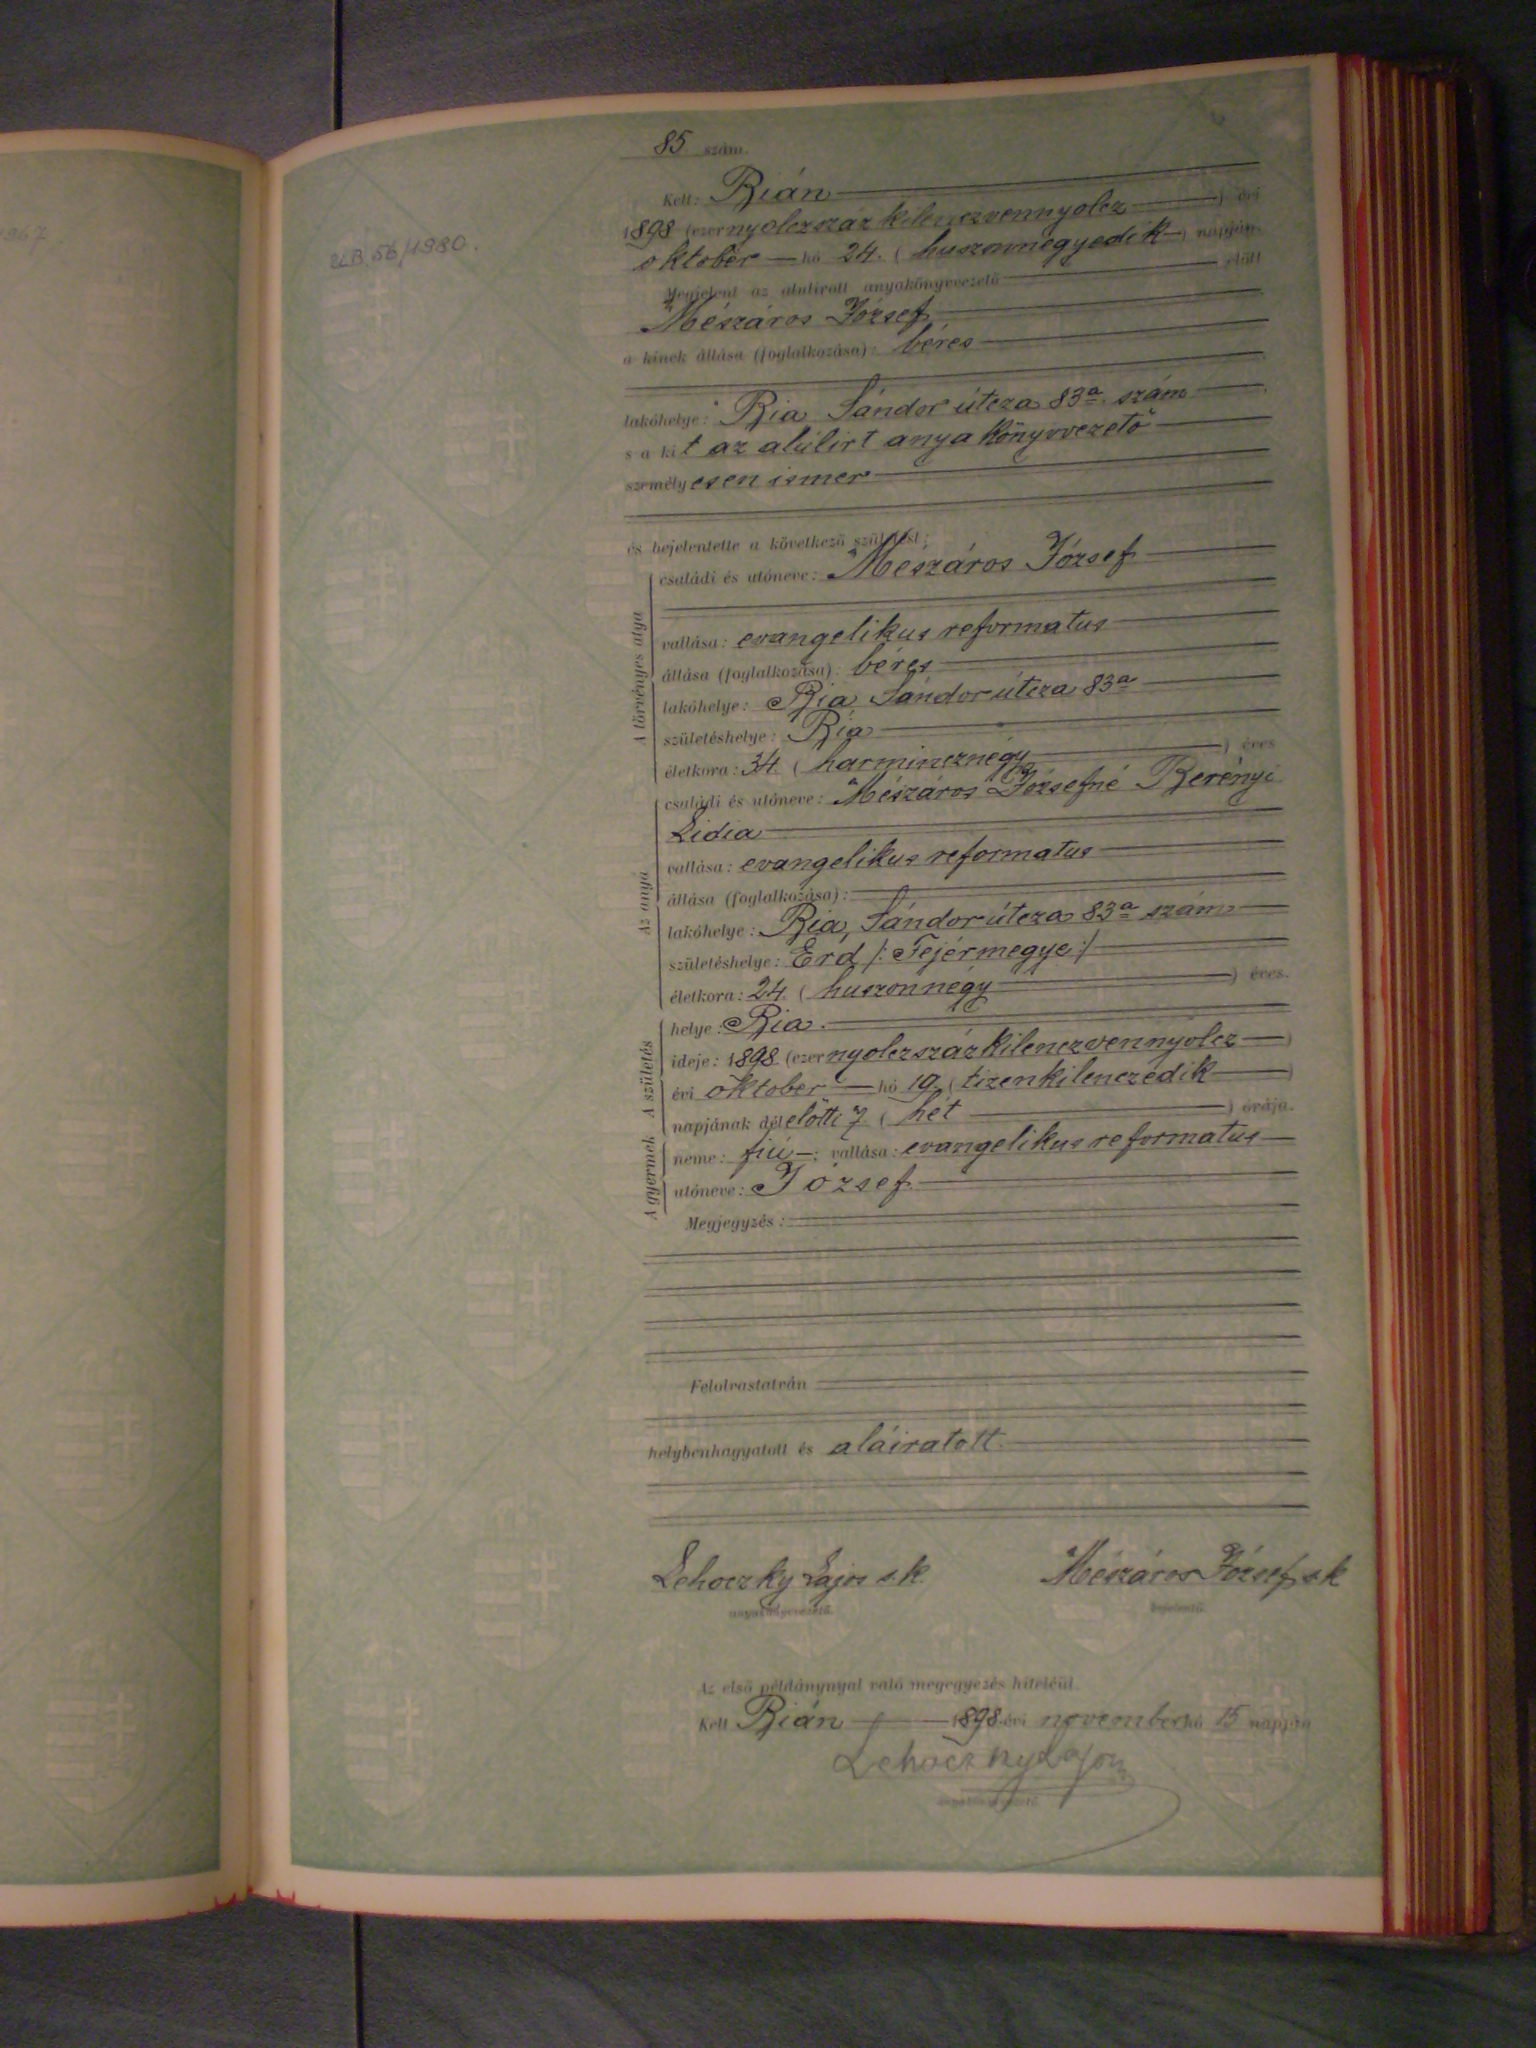 1967
U.B. 56/1980.
85 szám.
Kelt: Bián
1898 (ezernyolczszáz kilenczvennyolcz) évi
október hó 24. (huszonnegyedik) napján.
Megjelent az alulirott anyakönyvvezető előtt
Mészáros József
a kinek állása (foglalkozása): béres
lakóhelye: Bia Sándor útcza 83a szám
s a kit az alúlirt anyakönyvvezető
személyesen ismer
és bejelentette a következő születést:
A törvényes atya
családi és utóneve: Mészáros József
vallása: evangelikus reformatus
állása (foglalkozása): béres
lakóhelye: Bia Sándor útcza 83a
születéshelye: Bia
életkora: 34. (harmincznégy) éves
Az anya
családi és utóneve: Mészáros Józsefné Berényi
Lidia
vallása: evangelikus reformatus
állása (foglalkozása):
lakóhelye: Bia, Sándor útcza 83a szám
születéshelye: Érd /: Fejérmegye :/
életkora: 24. (huszonnégy) éves.
A születés
helye: Bia.
ideje: 1898 (ezernyolczszázkilenczvennyolcz)
évi október hó 19. (tizenkilenczedik)
napjának délelőtti 7 (hét) órája.
A gyermek
neme: fiú; vallása: evangelikus reformatus
utóneve: József
Megjegyzés:
Felolvastatván
helybenhagyatott és aláiratott
Lehoczky Lajos s.k. Mészáros József s.k.
anyakönyvvezető. bejelentő.
Az első példánynyal való megegyezés hiteléül.
Kelt Bián 1898 évi november hó 15 napján
Lehoczky Lajos
anyakönyvvezető.